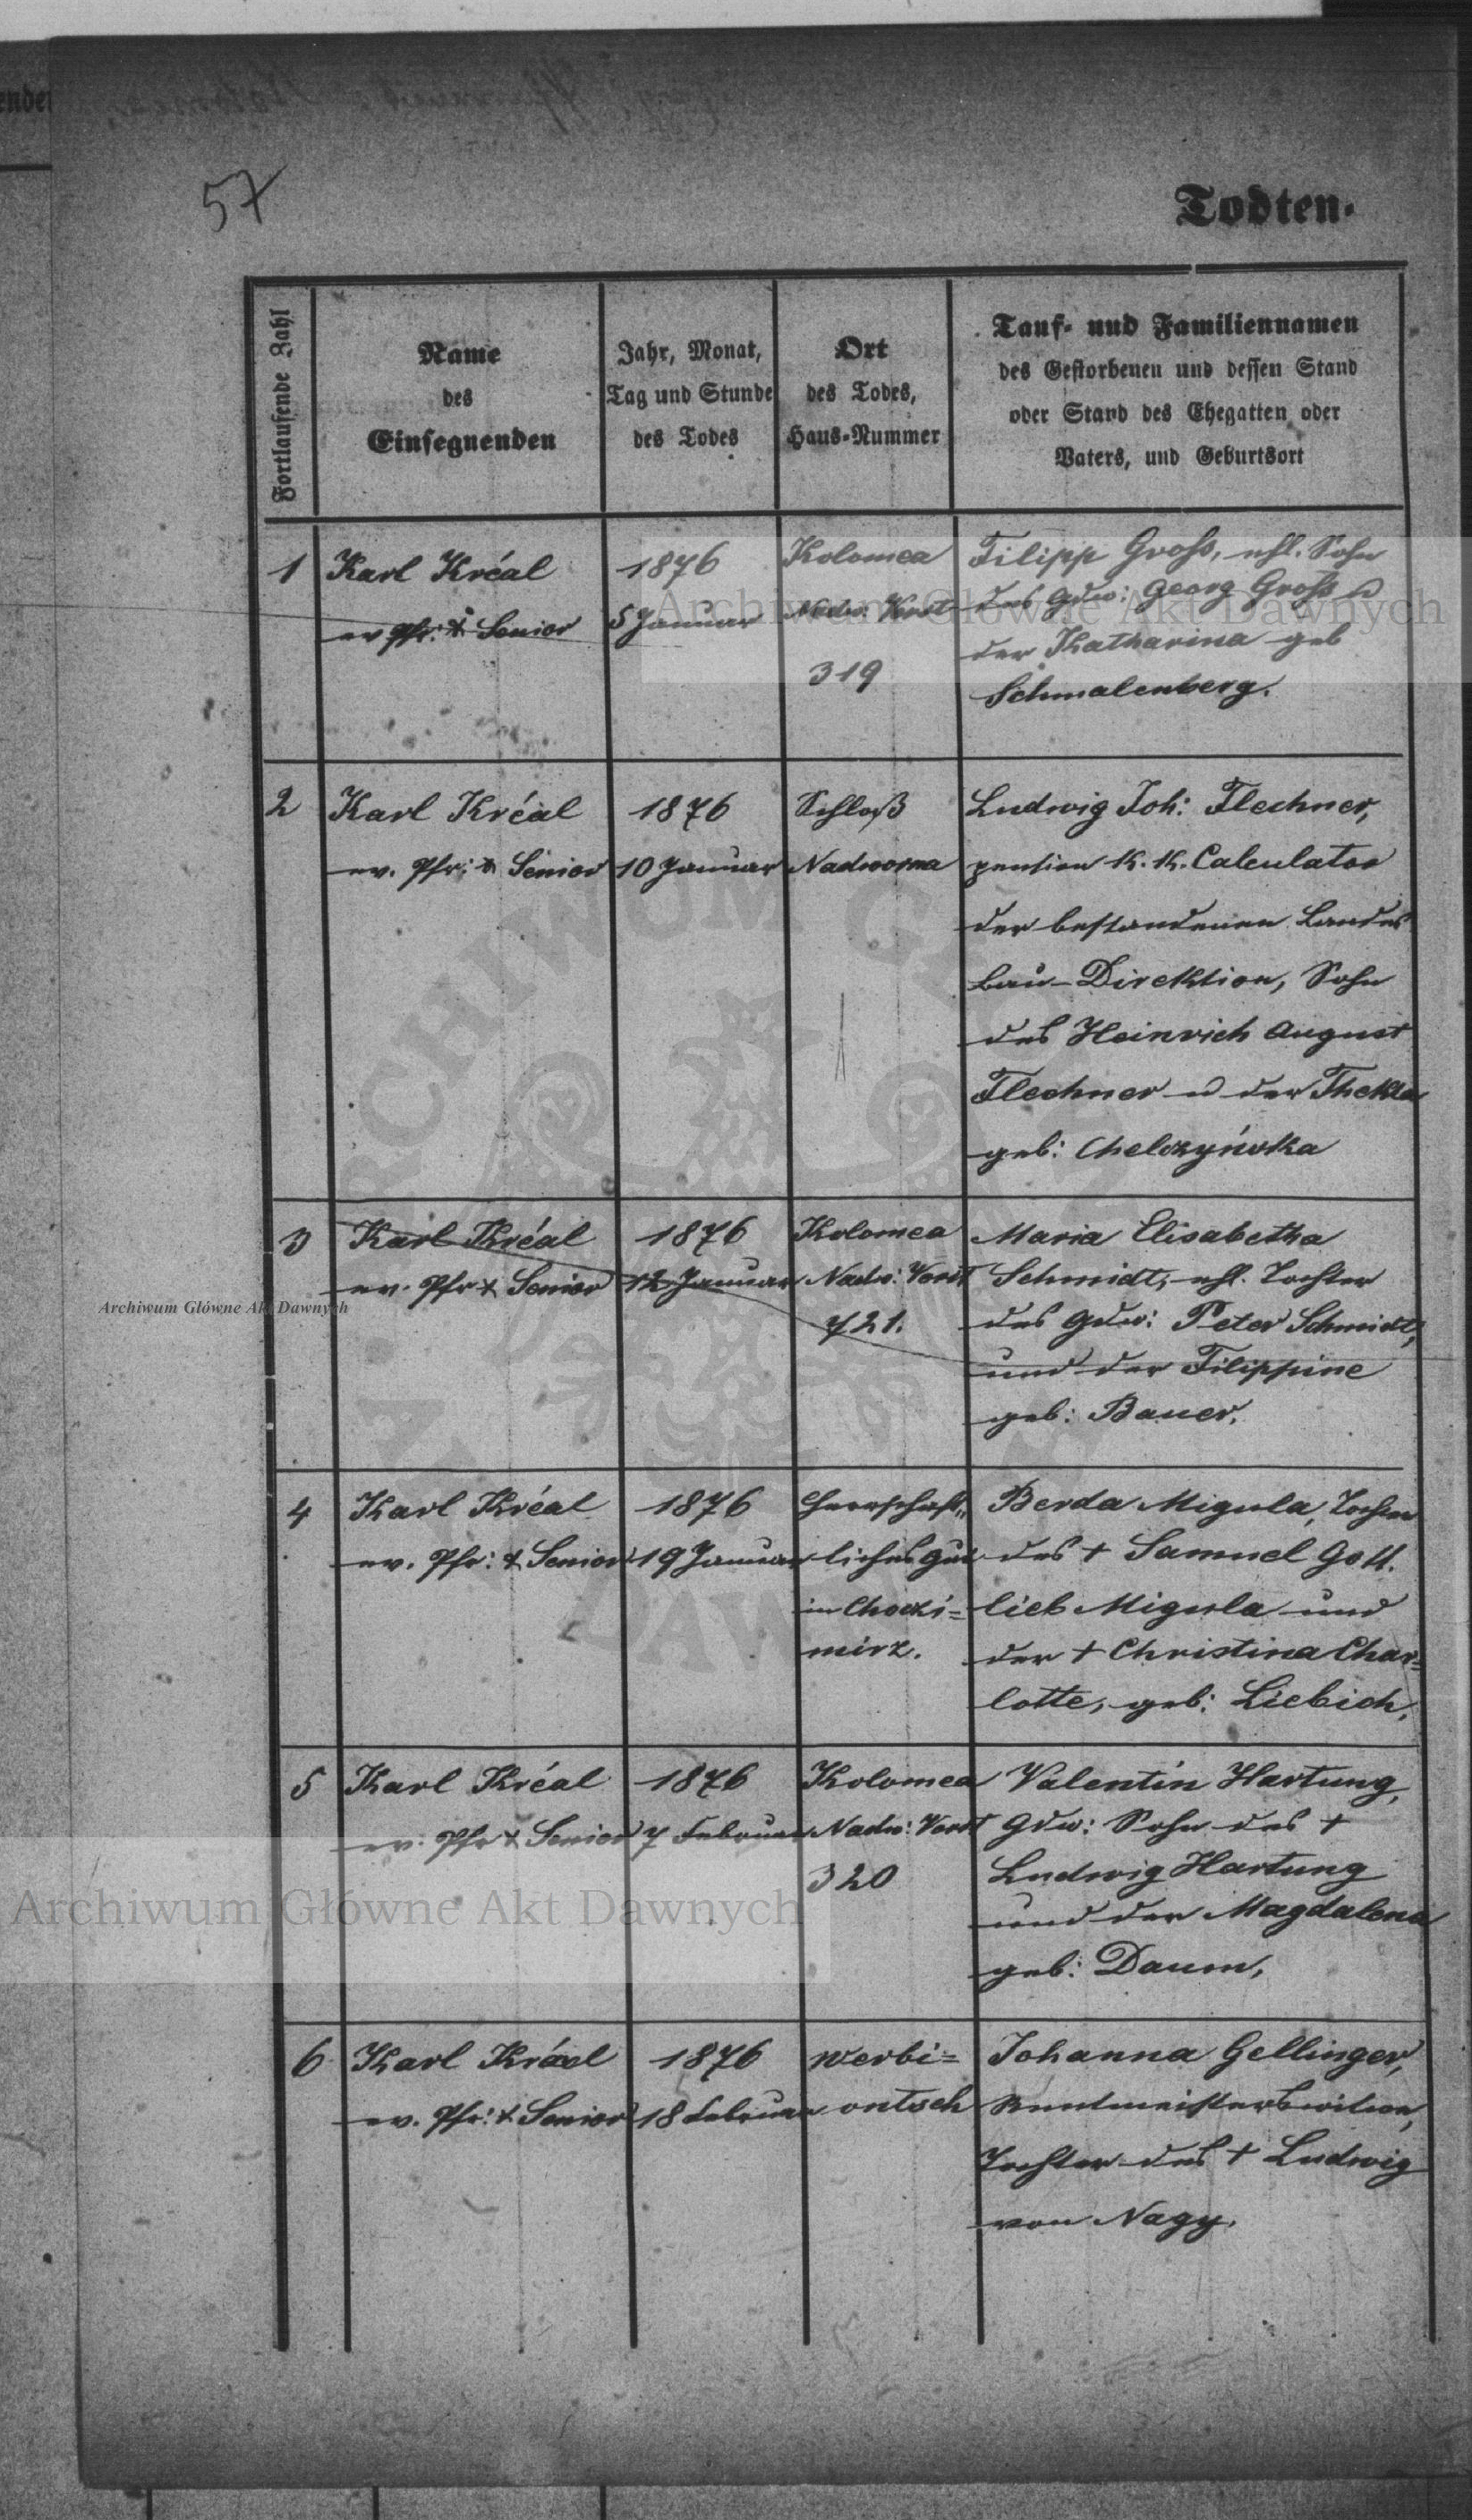 57
Todten-
Fortlaufende Zahl
Name
des
Einsegnenden
Jahr, Monat,
Tag und Stunde
des Todes
Ort
des Todes,
Haus-Nummer
Tauf- und Familiennamen
des Gestorbenen und dessen Stand
oder Stand des Ehegatten oder
Vaters, und Geburtsort
1
Karl Kréal
ev. Pfr: & Senior
1876
5 Januar
Kolomea
Nadw: Vorst
319
Filipp Groß, ehl. Sohn
des Gdw: Georg Groß u
der Katharina geb
Schmalenberg.
2
Karl Kréal
ev. Pfr: & Senior
1876
10 Januar
Schloß
Nadworna
Ludwig Joh: Flechner,
pension K. K. Calculator
der bestandenen Landes
Bau-Direktion, Sohn
des Heinrich August
Flechner u der Thekla
geb: Chelczyńska
3
Karl Kréal
ev. Pfr & Senior
1876
12 Januar
Kolomea
Nadw: Vorst
721.
Maria Elisabetha
Schmidt, ehl. Tochter
des Gdw: Peter Schmidt,
und der Filippine
geb: Bauer.
4
Karl Kréal
ev. Pfr: & Senior
1876
19 Januar
Herrschaft„
liches Gut
in Choczi=
mirz.
Berda Migula, Tochter
des + Samuel Gott.
lieb Migula und
der + Christina Char=
lotte, geb: Liebich,
5
Karl Kréal
ev. Pfr & Senior
1876
7 Februar
Kolomea
Nadw: Vorst
320
Valentin Hartung,
Gdw: Sohn des +
Ludwig Hartung
und der Magdalena
geb: Daum,
6
Karl Kréal
ev. Pfr: & Senior
1876
18 Februar
Werbi=
ontsch
Johanna Gellinger,
Rentmeisterswitwe,
Tochter des + Ludwig
von Nagy.
Archiwum Główne Akt Dawnych
Archiwum Główne Akt Dawnych
Archiwum Główne Akt Dawnych